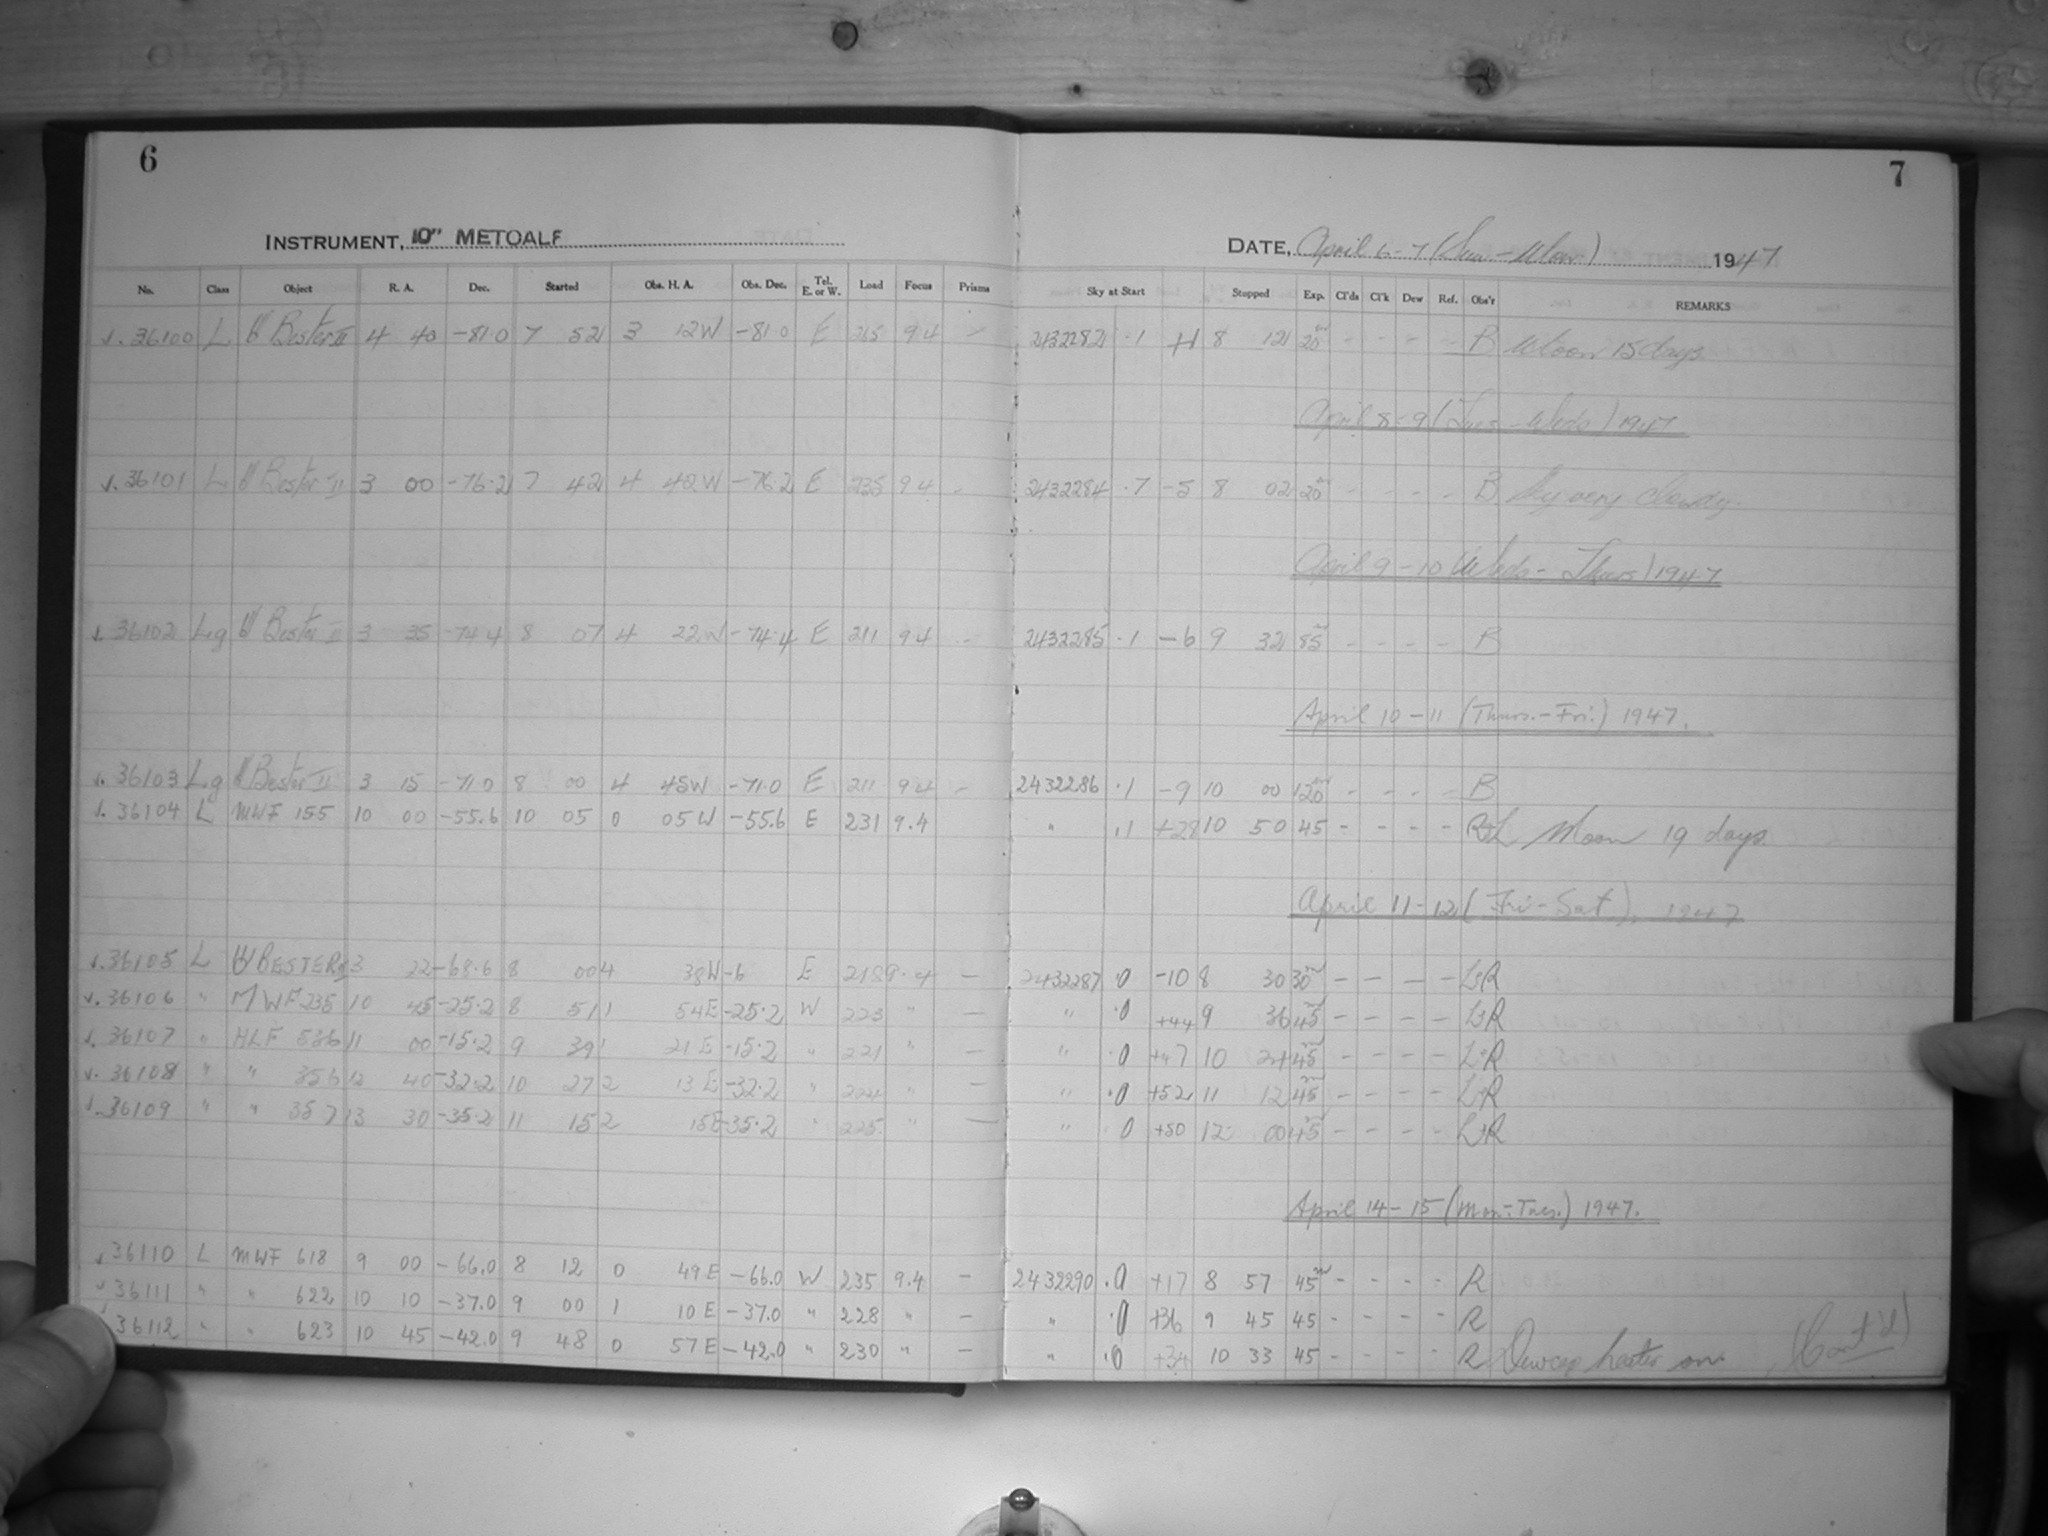 6
7
INSTRUMENT, 10" METCALF
DATE, April 6-7 (Sun-Mon) 1947
No. Class Object R. A. Dec. Started Obs. H. A. Obs. Dec. Tel. E. or W. Load Focus Prisms Sky at Start Stopped Exp. Cl'ds Cl'k Dew Ref. Obs'r REMARKS
36100 L Bester II 4 40 -81.0 7 52 3 12W -81.0 E 9.4 - 2432282 .1 8 12 20 - - - - B Moon 15 days
April 8-9 (Tues-Weds) 1947
36101 L Bester II 3 00 -76.2 7 42 4 42W -76.2 E 235 9.4 - 2432284 .7 -5 8 02 20 - - - - B Sky very cloudy.
April 9-10 (Weds-Thurs) 1947
36102 Lg Bester II 3 35 -74.4 8 07 4 22W -74.4 E 211 9.4 - 2432285 .1 -6 9 32 85 - - - - B
April 10-11 (Thurs.-Fri.) 1947.
36103 Lg Bester II 3 15 -71.0 8 00 4 45W -71.0 E 211 9.4 - 2432286 .1 -9 10 00 120 - - - - B
36104 L MWF 155 10 00 -55.6 10 05 0 05W -55.6 E 231 9.4 " .1 +28 10 50 45 - - - - R+L Moon 19 days.
April 11-12 (Fri-Sat), 1947
36105 L BESTER 3 22 -68.6 8 00 4 38W -6 E 218 9.4 - 2432287 .0 -10 8 30 30m - - - - L+R
36106 " MWF 235 10 45 -25.2 8 51 1 54E -25.2 W 223 " - " .0 +44 9 36 45m - - - - L+R
36107 " HLF 536 11 00 -15.2 9 39 1 21E -15.2 " 221 " - " .0 +47 10 24 45m - - - - L+R
36108 " " 356 12 40 -32.2 10 27 2 13E -32.2 " 224 " - " .0 +52 11 12 45m - - - - L+R
36109 " " 357 13 30 -35.2 11 15 2 15E -35.2 " 225 " - " 0 +50 12 00 45m - - - - L+R
April 14-15 (Mon.-Tues.) 1947.
36110 L MWF 618 9 00 -66.0 8 12 0 49E -66.0 W 235 9.4 - 2432290 .0 +17 8 57 45m - - - - R
36111 " " 622 10 10 -37.0 9 00 1 10E -37.0 " 228 " - " .0 +36 9 45 45 - - - - R
36112 " " 623 10 45 -42.0 9 48 0 57E -42.0 " 230 " - " .0 +34 10 33 45 - - - - R Dewcap heater on. (Cont'd)